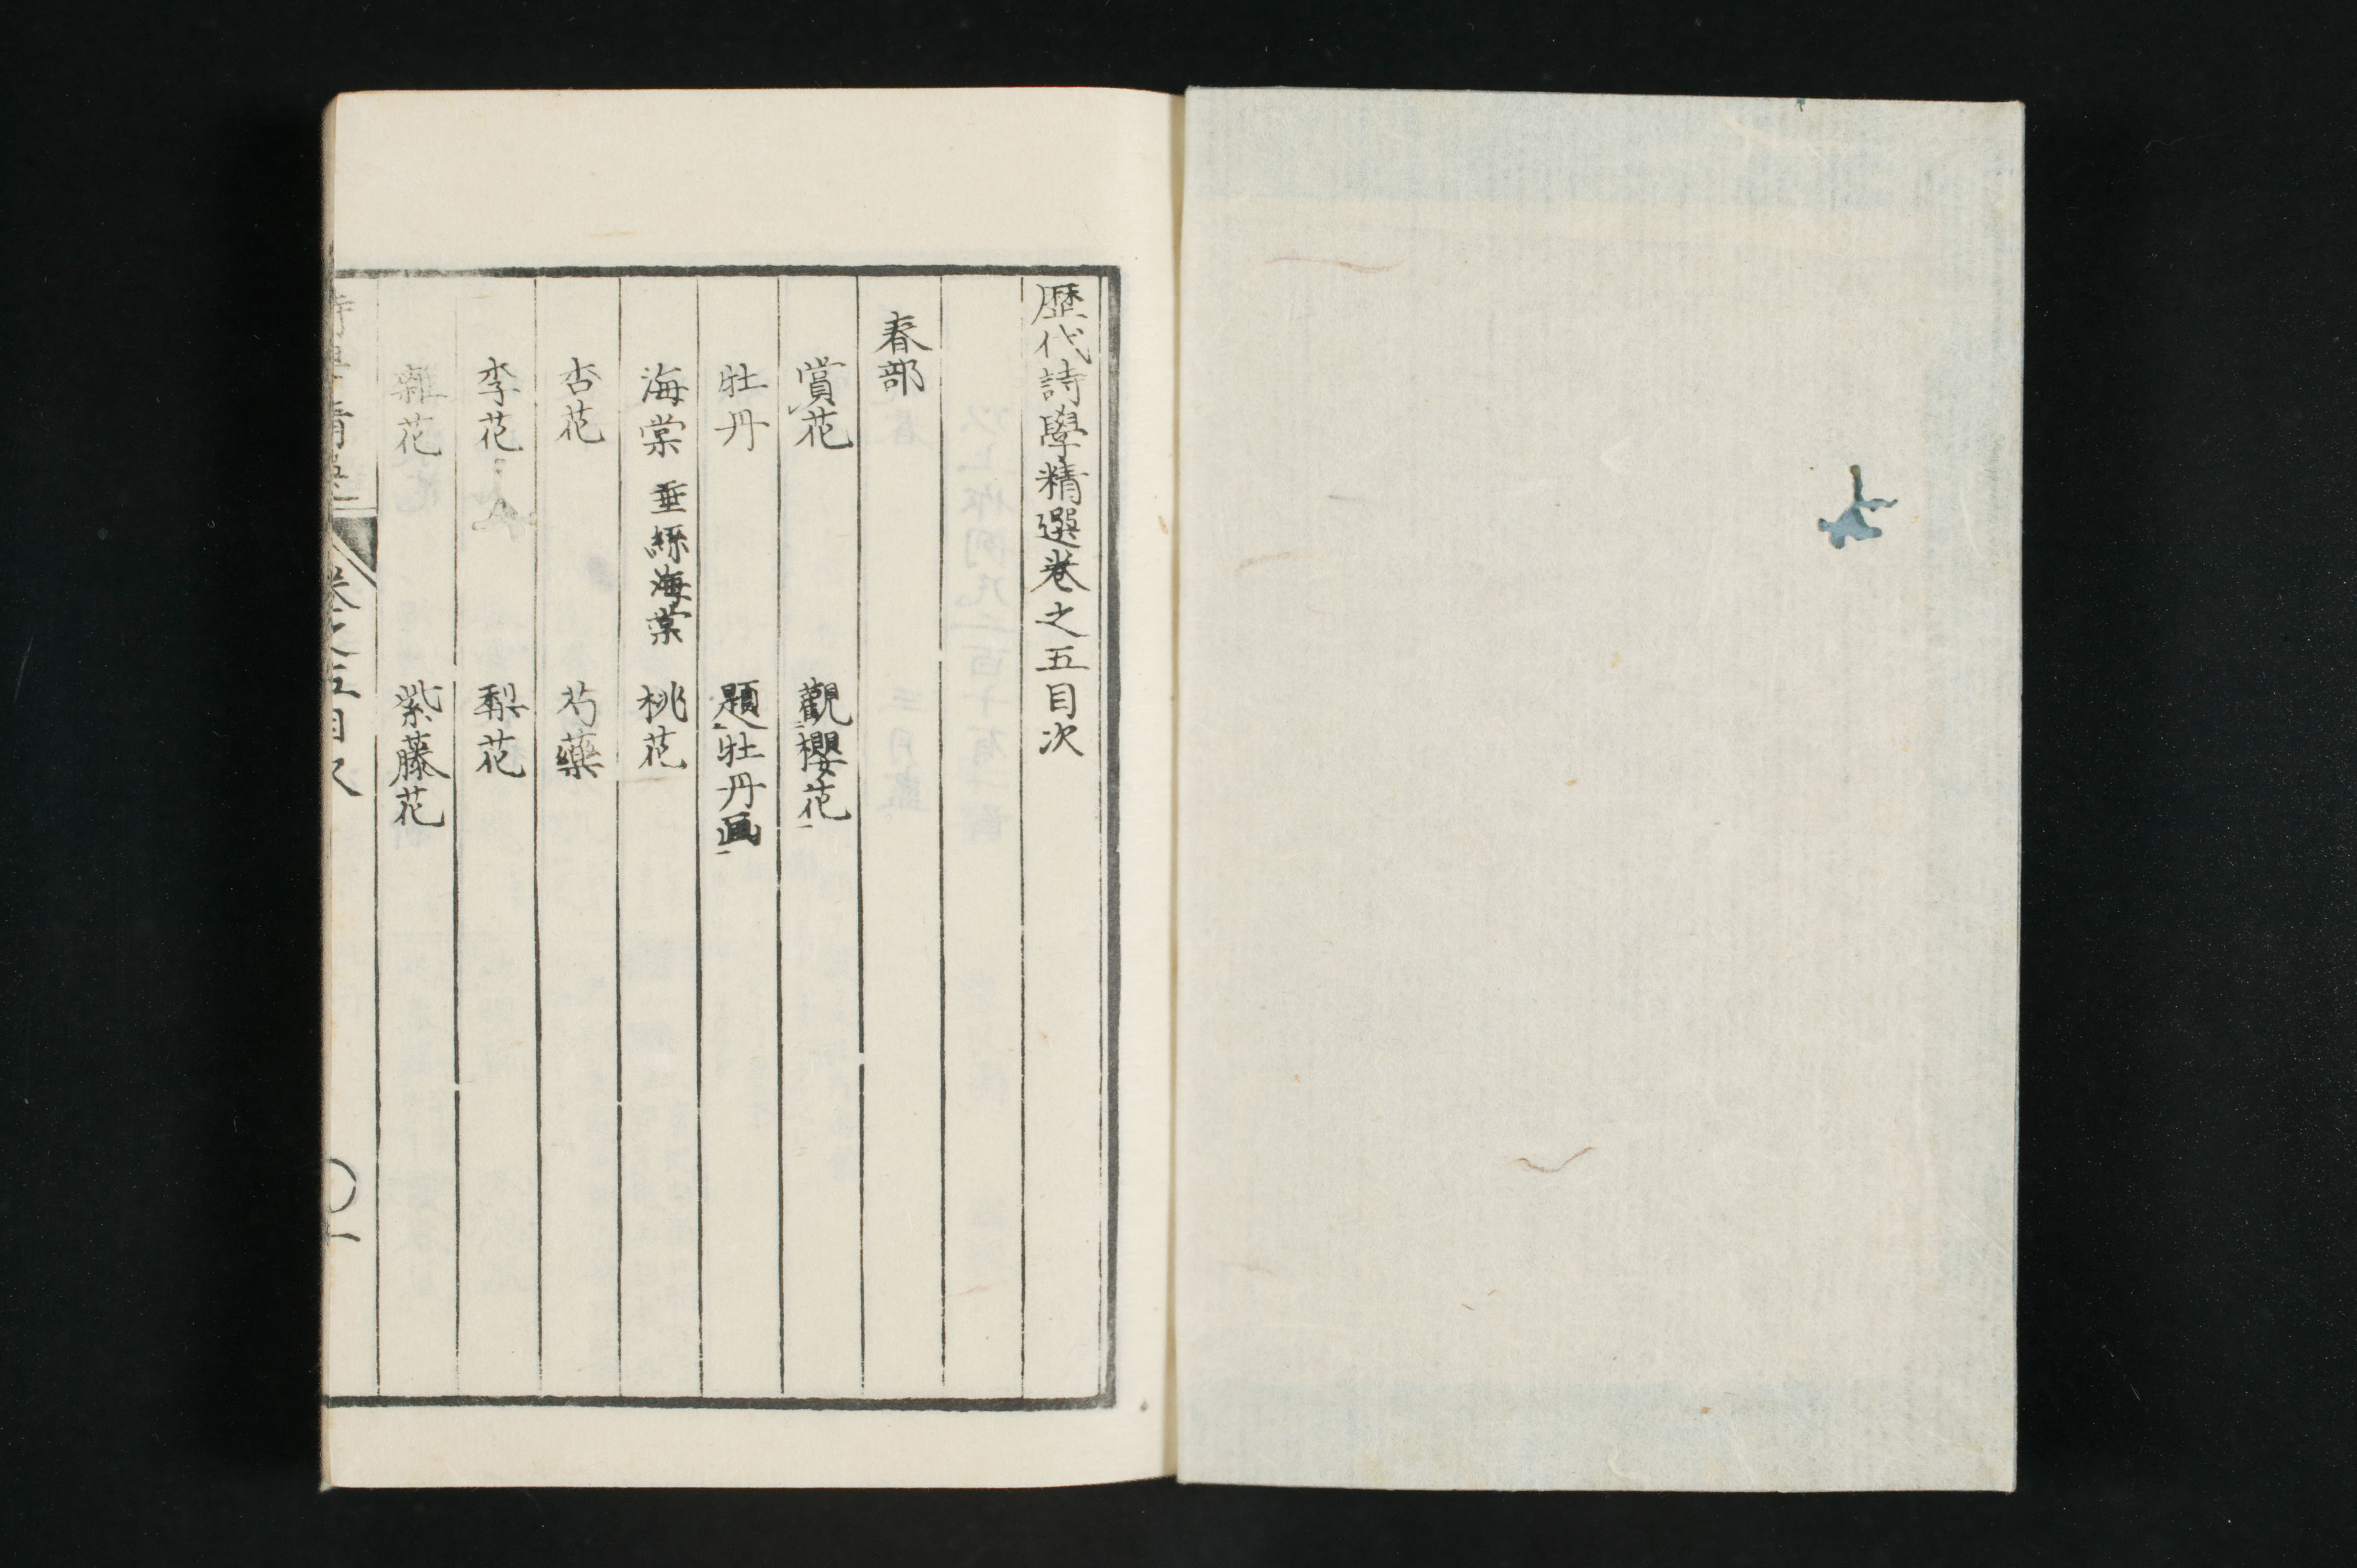 歴代詩學精選卷之五目次
春部
賞花 觀櫻花
牡丹 題牡丹画
海棠 垂絲海棠 桃花
杏花 芍藥
李花 梨花
雜花 紫藤花
卷之五目次